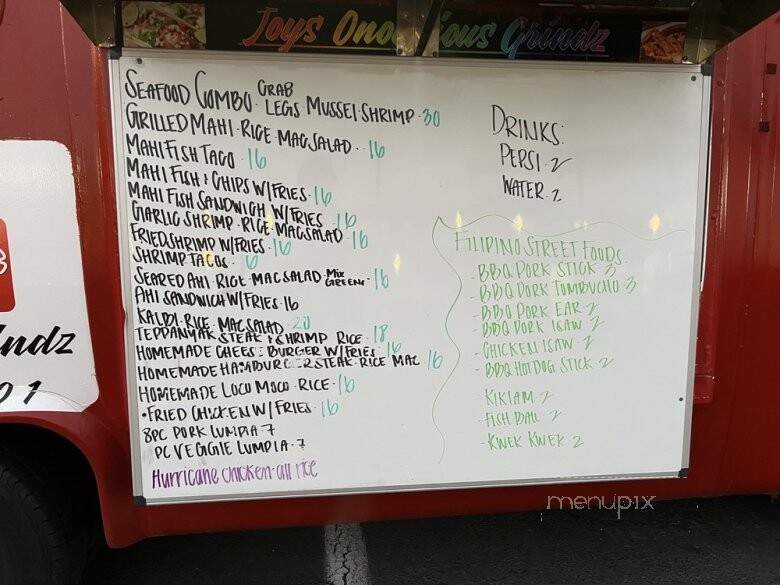 Joys Ono ious Grindz
SEAFOOD COMBO - CRAB LEGS - MUSSEL - SHRIMP - 30
GRILLED MAHI - RICE MACSALAD - 16
MAHI FISH TACO - 16
MAHI FISH & CHIPS W/FRIES - 16
MAHI FISH SANDWICH W/FRIES - 16
GARLIC SHRIMP - RICE - MACSALAD 16
FRIED SHRIMP W/FRIES - 16
SHRIMP TACOS -
SEARED AHI - RICE - MACSALAD - MIX GREENS - 16
AHI SANDWICH W/FRIES - 16
KALBI - RICE - MACSALAD 20
TEPPANYAK STEAK & SHRIMP RICE - 18
HOMEMADE CHEESE BURGER W/FRIES 16
HOMEMADE HAMBURGER STEAK - RICE MAC 16
HOMEMADE LOCO MOCO - RICE - 16
• FRIED CHICKEN W/ FRIES 16
8PC PORK LUMPIA - 7
PC VEGGIE LUMPIA - 7
Hurricane chicken - rice
DRINKS:
PEPSI - 2
WATER - 2
FILIPINO STREET FOODS
- BBQ PORK STICK 3
- BBQ PORK TUMBUCHO 3
- BBQ PORK EAR 2
- BBQ PORK ISAW 2
- CHICKEN ISAW 2
- BBQ HOTDOG STICK - 2
KIKIAM 2
- FISH BALL 2
- KWEK KWEK 2
ndz
01
menupix